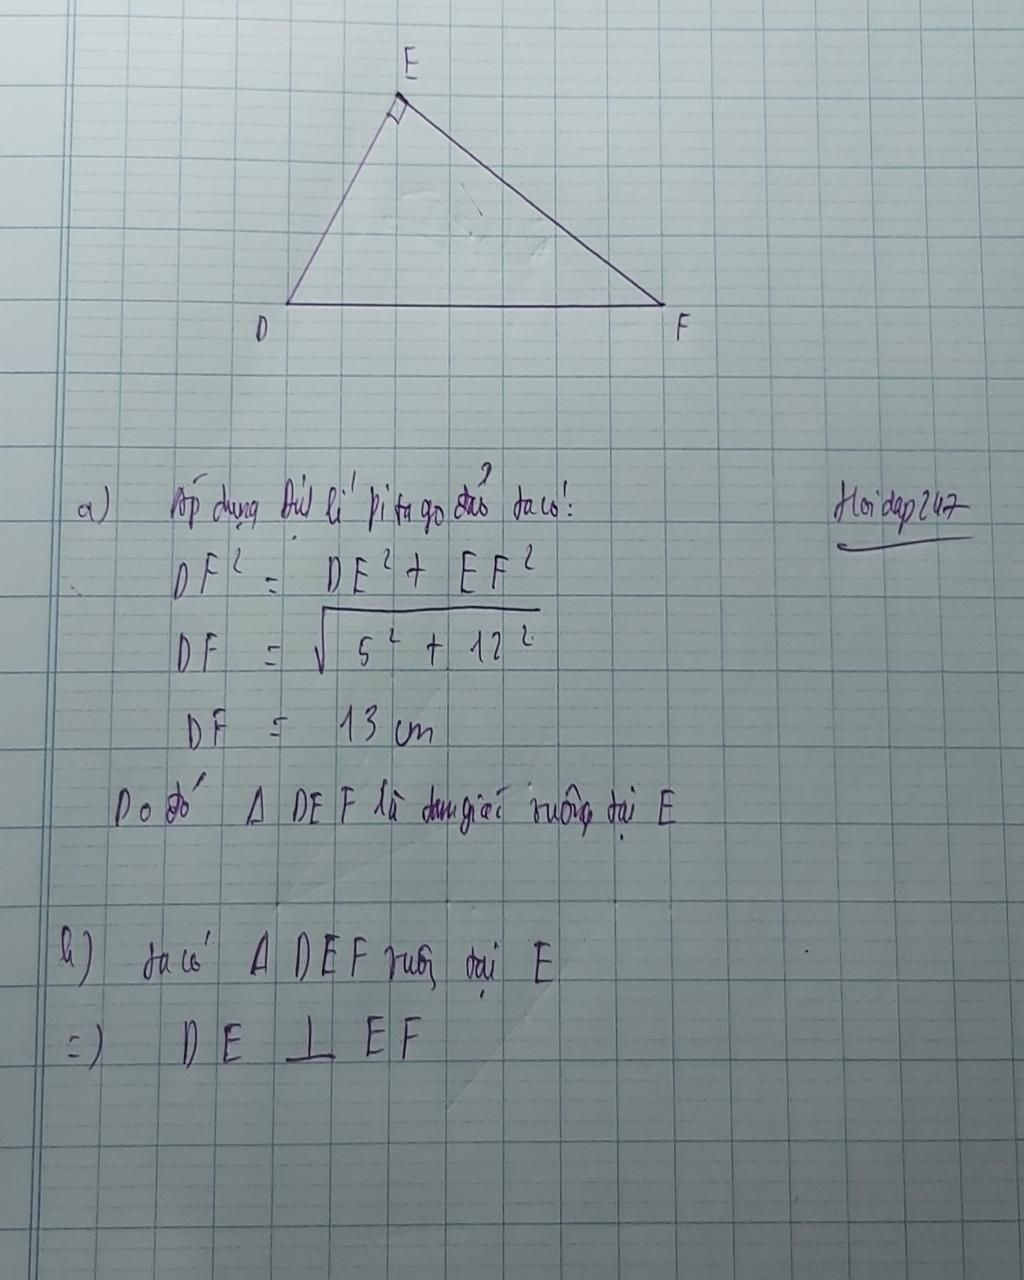 E
D
F
a) Áp dụng định lí pitago đảo ta có:
Hoidap247
DF² = DE² + EF²
DF = √5² + 12²
DF = 13 cm
Do đó Δ DEF là tam giác vuông tại E
b) ta có Δ DEF vuông tại E
=) DE ⊥ EF